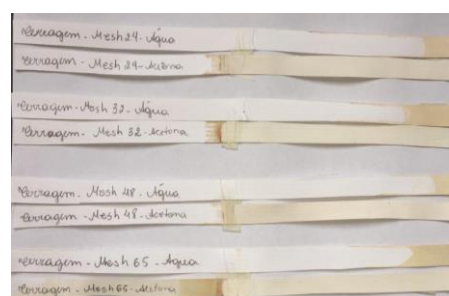 Serragem - Mesh 24 - Água
Serragem - Mesh 24 - Acetona
Serragem - Mesh 32 - Água
Serragem - Mesh 32 - Acetona
Serragem - Mesh 48 - Água
Serragem - Mesh 48 - Acetona
Serragem - Mesh 65 - Água
Serragem - Mesh 65 - Acetona